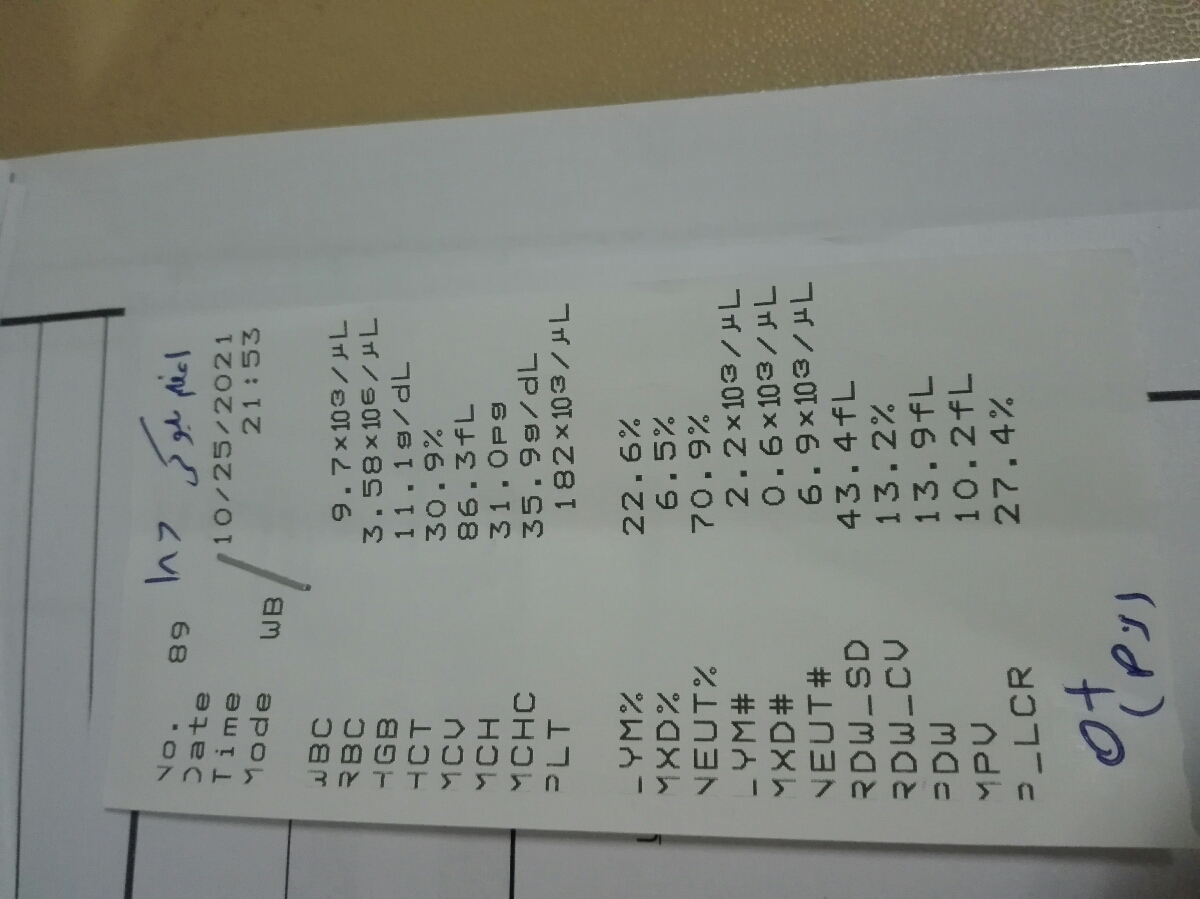 No. 89
Date 10/25/2021
Time 21:53
Mode WB
WBC 9.7×10³/μL
RBC 3.58×10⁶/μL
HGB 11.1g/dL
HCT 30.9%
MCV 86.3fL
MCH 31.0pg
MCHC 35.9g/dL
PLT 182×10³/μL
LYM% 22.6%
MXD% 6.5%
NEUT% 70.9%
LYM# 2.2×10³/μL
MXD# 0.6×10³/μL
NEUT# 6.9×10³/μL
RDW_SD 43.4fL
RDW_CV 13.2%
PDW 13.9fL
MPV 10.2fL
P_LCR 27.4%
O+